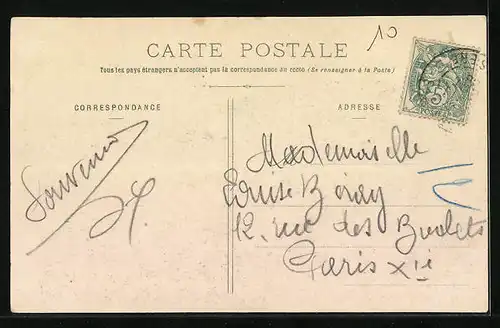 10
CARTE POSTALE
Tous les pays étrangers n'acceptent pas la correspondance au recto (Se renseigner à la Poste)
CORRESPONDANCE
ADRESSE
Souvenir
Mademoiselle
Louise
12, rue des
Paris XIe